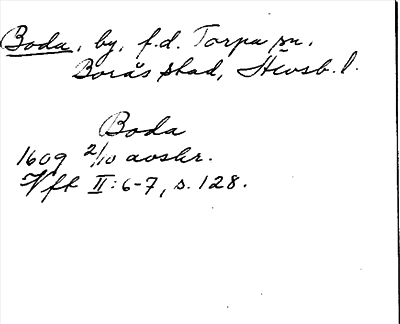 Boda, by, f.d. Torpa sn,
Borås stad, Älvsb. l.
Boda
1609 2/10 avskr.
Vft II:6-7, s. 128.